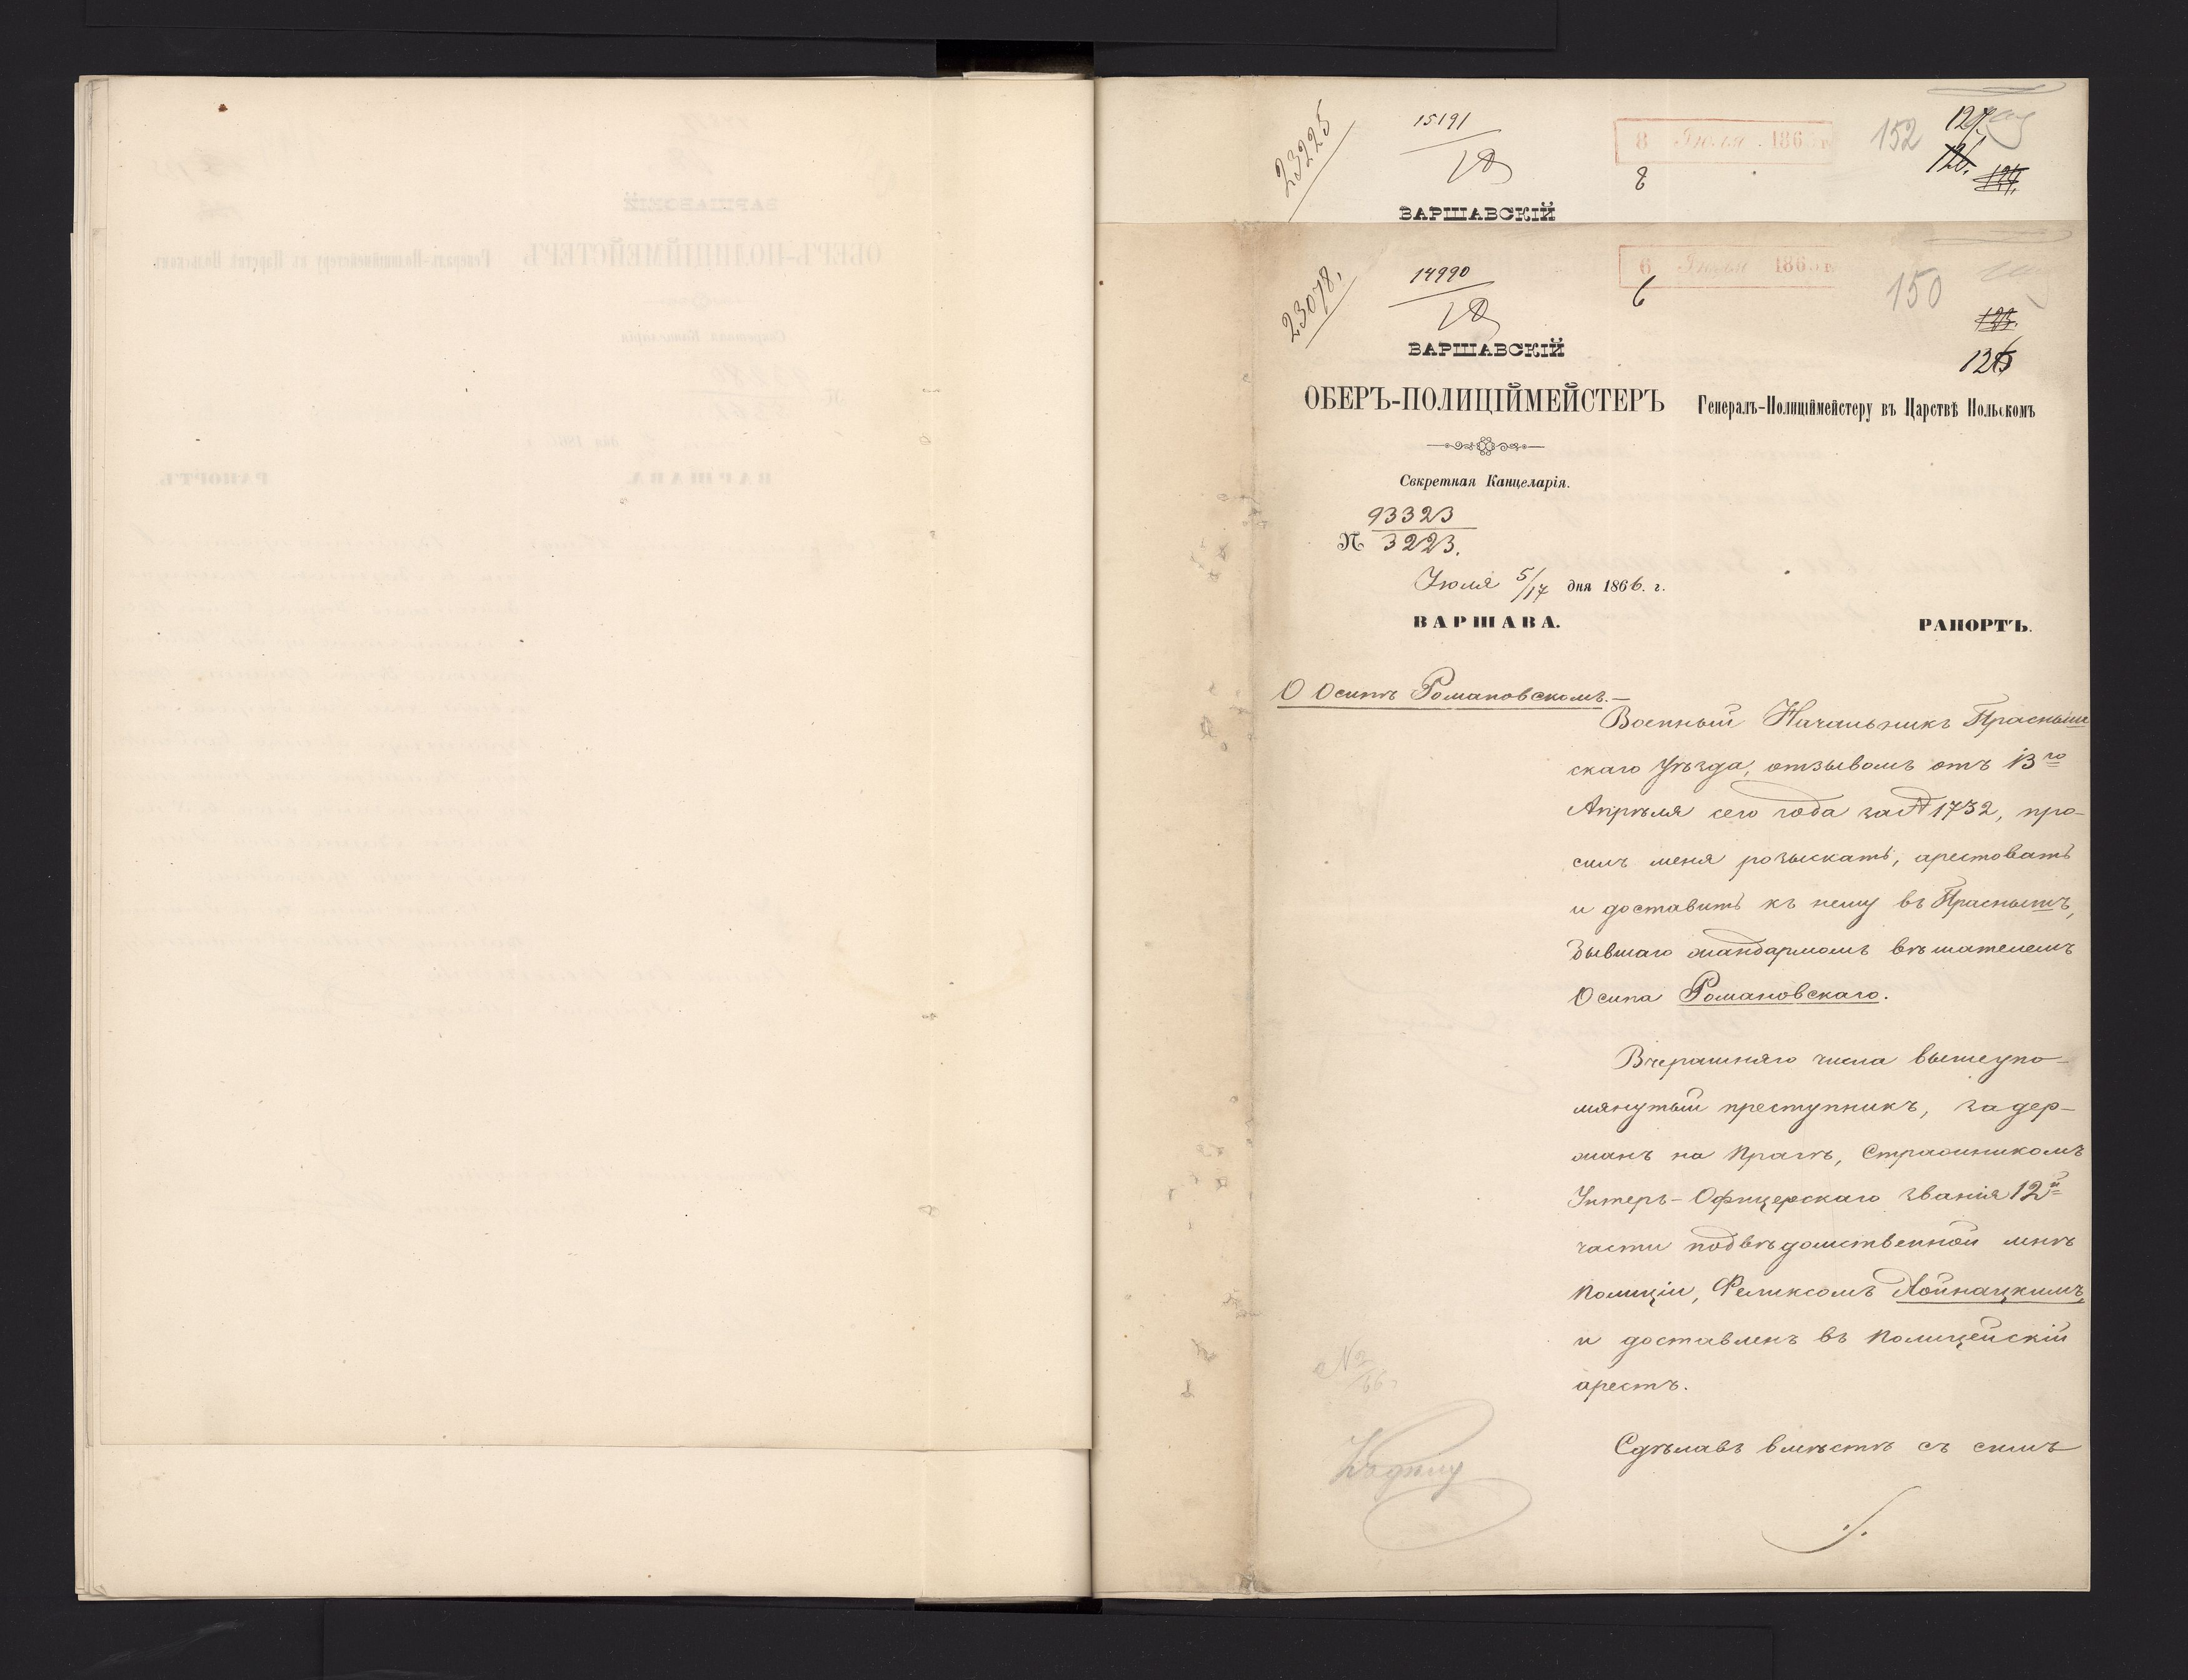 23225
15191
8 Іюля 186
152
127.
126.
124.
8
ВАРШАВСКІЙ
23078.
14990
6 Іюля 186
150
6
123.
125
ВАРШАВСКІЙ
ОБЕРЪ-ПОЛИЦІЙМЕЙСТЕРЪ
Генералъ-Полиціймейстеру въ Царствѣ Польскомъ
Секретная Канцелярія.
93323
N 3223.
Іюля 5/17 дня 1866. г.
ВАРШАВА.
РАПОРТЪ.
О Осипѣ Романовскомъ.—
Военный Начальникъ Прасныш
скаго Уѣзда, отзывомъ отъ 13го
Апрѣля сего года за N 1732, про-
силъ меня розыскать, арестовать
и доставить къ нему въ Праснышъ,
бывшаго жандармомъ вѣшателемъ
Осипа Романовскаго.
Вчерашняго числа вышеупо-
мянутый преступникъ, задер-
жанъ на Прагѣ, Стражникомъ
Унтеръ-Офицерскаго званія 12й
части подвѣдомственной мнѣ
Полиціи, Феликсомъ Хойнацкимъ,
и доставленъ въ Полицейскій
арестъ.
Сдѣлавъ вмѣстѣ съ симъ
./.